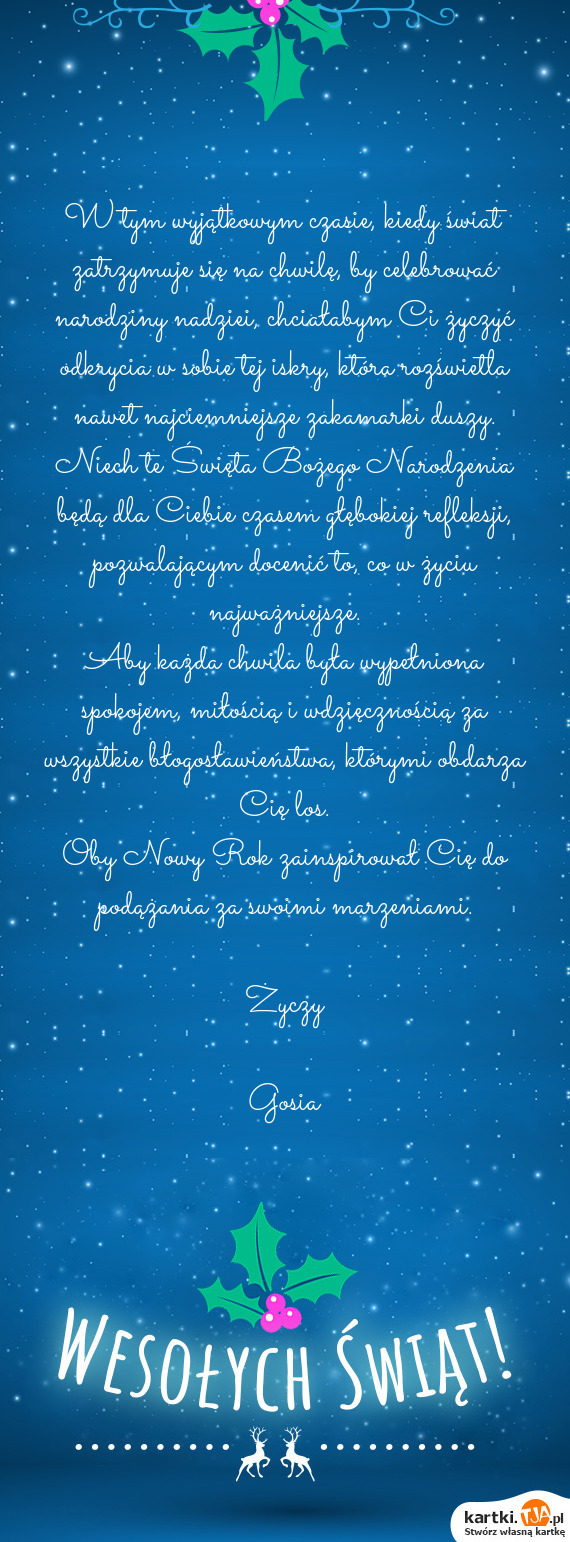 W tym wyjątkowym czasie, kiedy świat
zatrzymuje się na chwilę, by celebrować
narodziny nadziei, chciałabym Ci życzyć
odkrycia w sobie tej iskry, która rozświetla
nawet najciemniejsze zakamarki duszy.
Niech te Święta Bożego Narodzenia
będą dla Ciebie czasem głębokiej refleksji,
pozwalającym docenić to, co w życiu
najważniejsze.
Aby każda chwila była wypełniona
spokojem, miłością i wdzięcznością za
wszystkie błogosławieństwa, którymi obdarza
Cię los.
Oby Nowy Rok zainspirował Cię do
podążania za swoimi marzeniami.
Życzy
Gosia
Wesołych Świąt!
kartki.TJA.pl
Stwórz własną kartkę